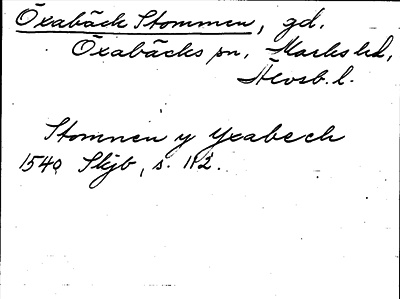 Öxabäck Stommen, gd.
Öxabäcks sn, Marks hd,
Älvsb. l.
Stommen y yxabeck
1540 Skjb, s. 112.